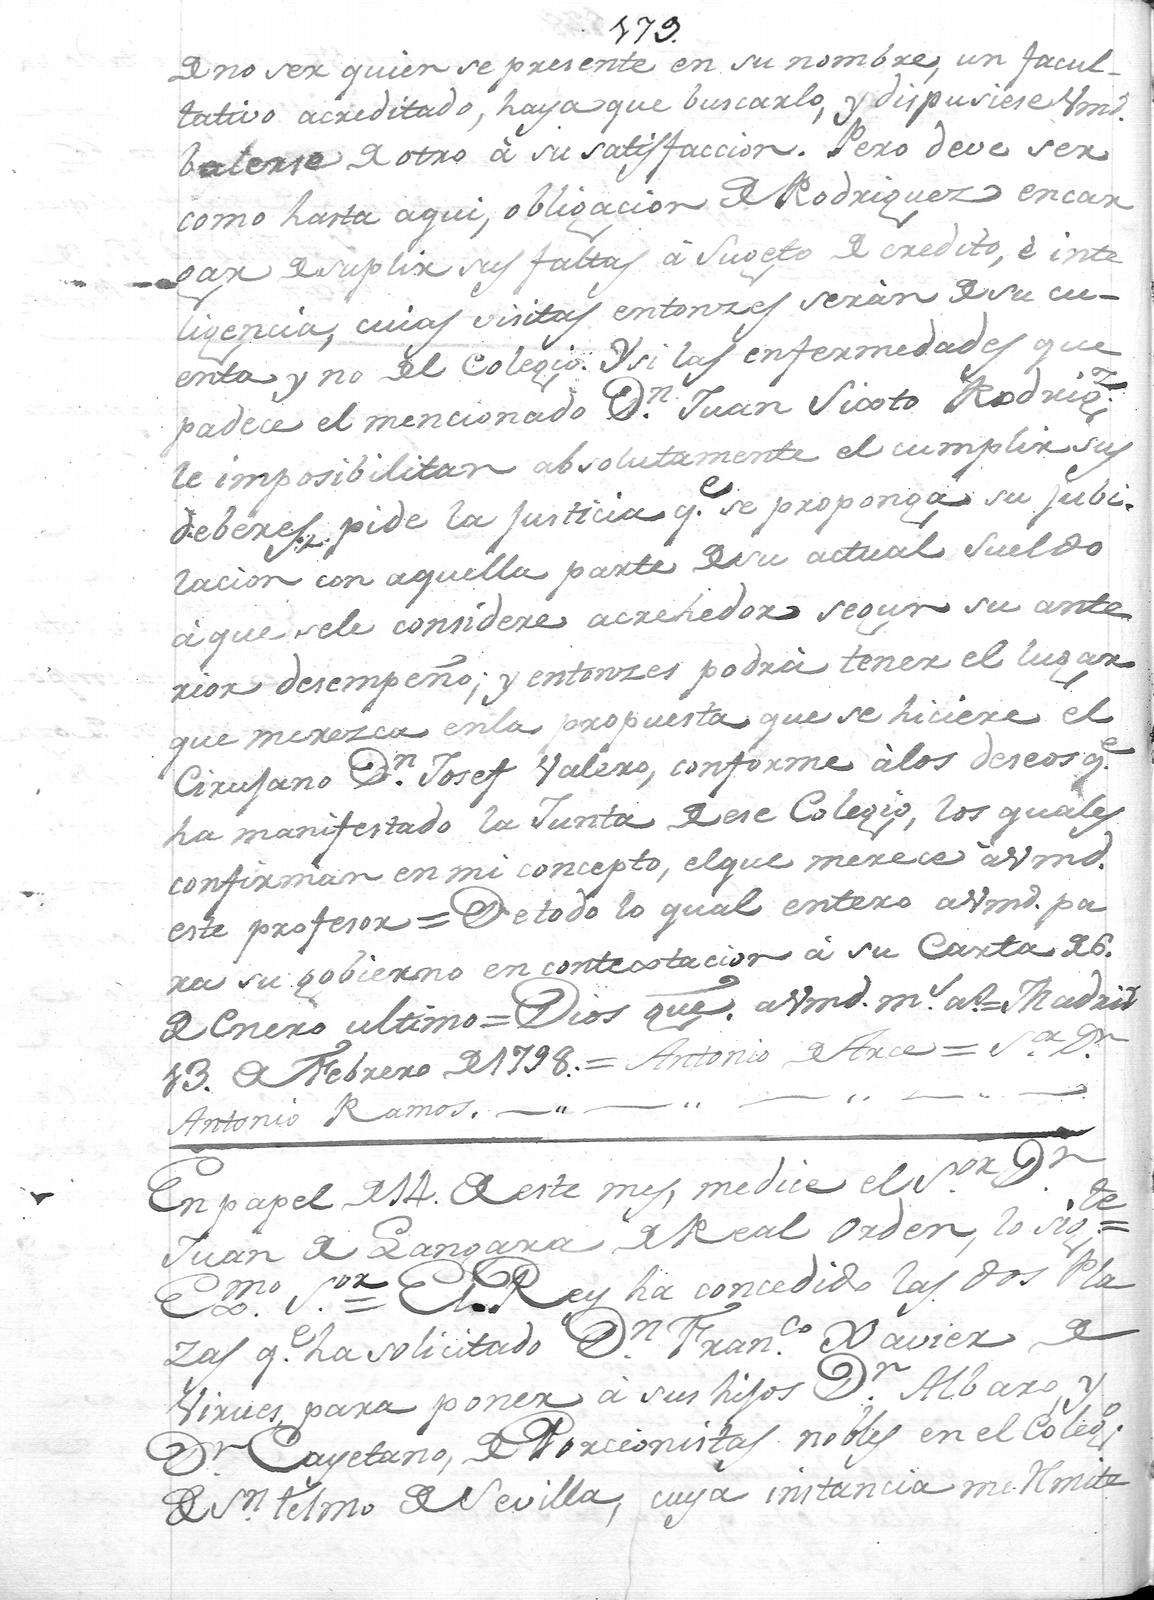 173.
de no ser quien se presente en su nombre, un facul-
tativo acreditado, haya que buscarlo, y dispusiese Vmd.
balerse de otro à su satisfaccion. Pero deve ser
como hasta aqui, obligacion de Rodriguez encar
gar de suplir sus faltas à Sugeto de credito, è inte
ligencia, cuias visitas entonzes seràn de su cu-
enta y no del Colegio. Y si las enfermedades que
padece el mencionado Dn. Juan Sixto Rodrigz.
le imposibilitan absolutamente el cumplir sus
deberes, pide la Justicia qe. se proponga su Jubi-
lacion con aquella parte de su actual sueldo
à que sele considere acrehedor segun su ante
rior desempeño; y entonzes podrà tener el lugar
que merezca enla propuesta que se hiciere el
Cirujano Dn. Josef Valero, conforme àlos deseos qe.
ha manifestado la Junta de ese Colegio, los quales
confirman en mi concepto, elque merece à Vmd.
este profesor = De todo lo qual entero a Vmd. pa
ra su gobierno en contextacion à su Carta de 6.
de Enero ultimo = Dios gue. a Vmd. ms. as. = Madrid
13. de Febrero de 1798. = Antonio de Arce = Sor. Dn.
Antonio Ramos. — " — " — " — " —
En papel de 14. de este mes, medice el Sor. Dn.
Juan de Langara de Real Orden, lo sigte. =
Exmo. Sor. = El Rey ha concedido las dos Pla
zas qe. ha solicitado Dn. Franco. Xavier de
Virues, para poner à sus hijos Dn. Albaro, y
Dn. Cayetano, de Porcionistas nobles en el Colego.
de Sn. Telmo de Sevilla, cuya instancia me Rmite